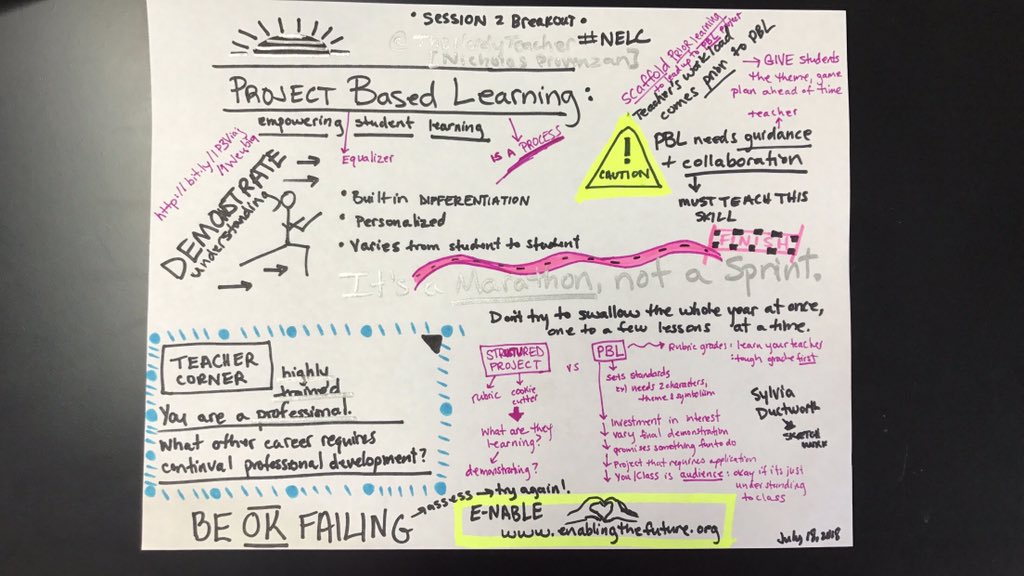 • Session 2 Breakout •
#NELC
@TheNerdyTeacher
[Nicholas Provenzano]
Project Based Learning:
empowering student learning
Equalizer
IS A PROCESS
Scaffold prior learning
to lead up to PBL project
Teacher's workload
comes prior to PBL
→ GIVE students
the theme, game
plan ahead of time
teacher
PBL needs guidance
+ collaboration
MUST TEACH THIS
SKILL
!
CAUTION
DEMONSTRATE
understanding
• Built-in DIFFERENTIATION
• Personalized
• Varies from student to student
FINISH
It's a Marathon, not a Sprint.
Don't try to swallow the whole year at once,
one to a few lessons at a time.
TEACHER
CORNER
highly
trained
You are a professional.
What other career requires
continual professional development?
STRUCTURED
PROJECT
rubric
cookie
cutter
What are they
learning?
demonstrating?
vs
PBL
→ Rubric grades: learn your teacher
: tough grade first
Sets standards
ex) needs 2 characters,
theme & symbolism
Investment in interest
vary final demonstration
promises something fun to do
Project that requires application
You/Class is audience: okay if its just
understanding
to class
Sylvia
Duckworth
SKETCH
WORK
BE OK FAILING → assess → try again!
E-NABLE
www.enablingthefuture.org
July 18, 2018